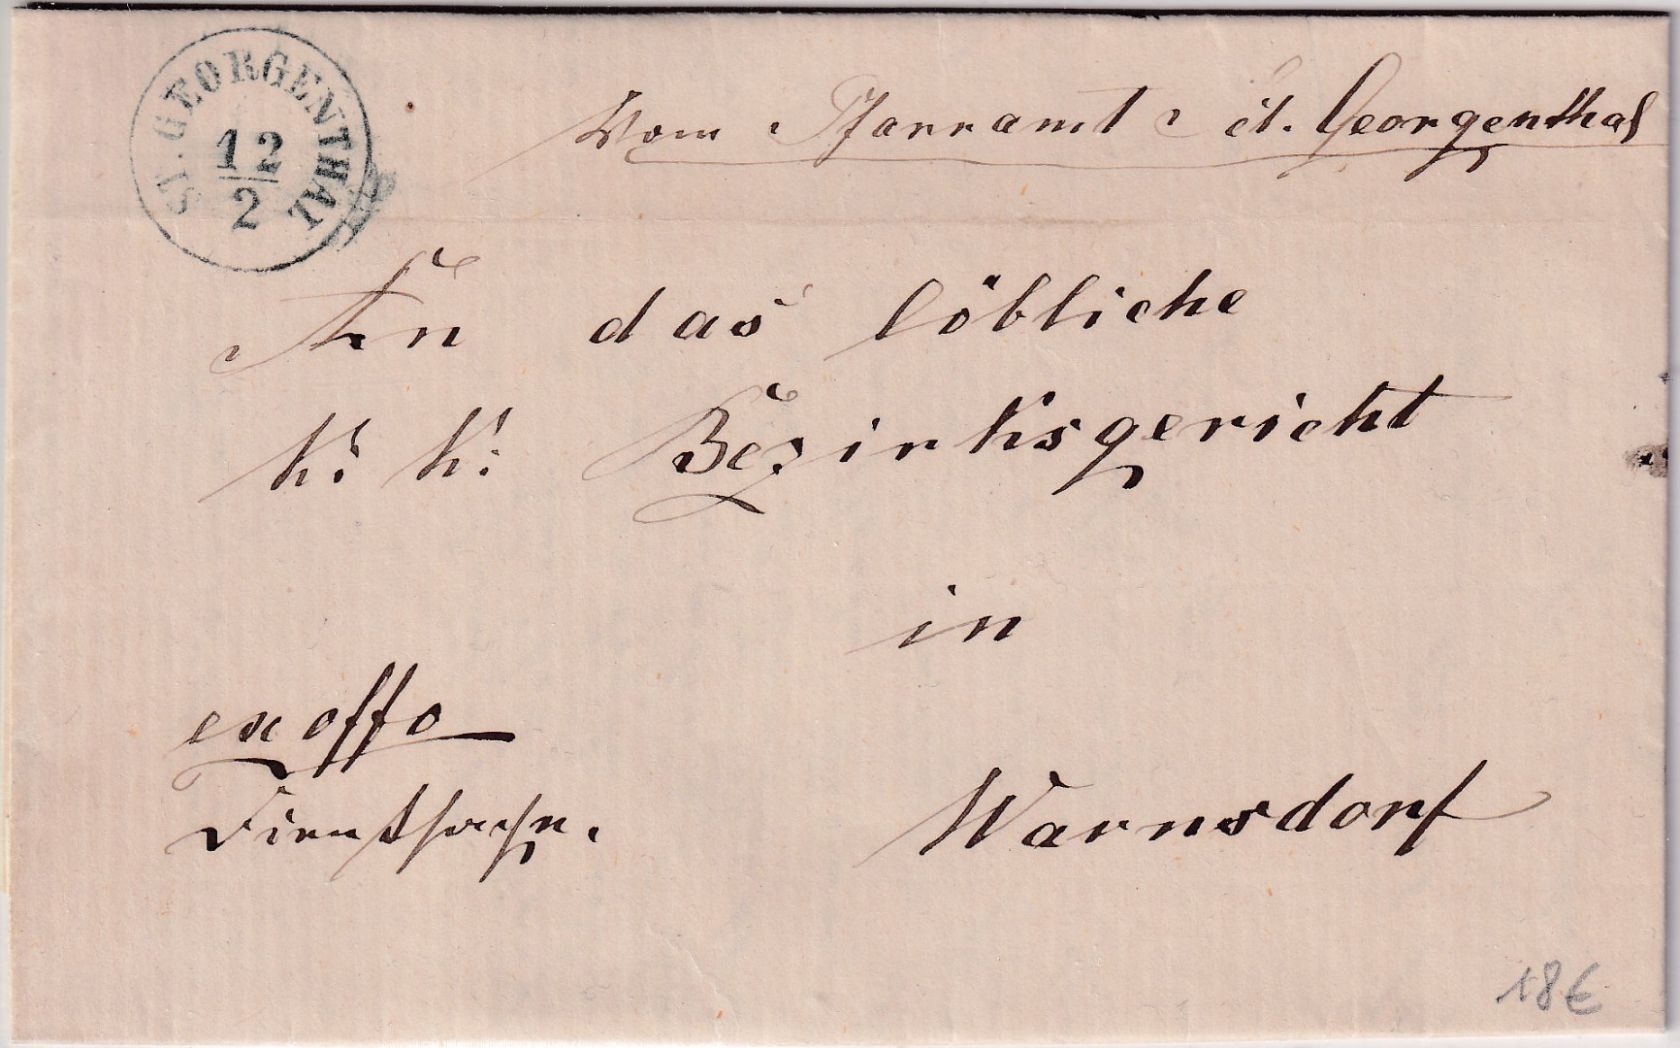 ST. GEORGENTHAL
12
2
Vom Pfarramt St. Georgenthal
An das löbliche
k: k: Bezirksgericht
in
ex offo
Dienstsache.
Warnsdorf
18€